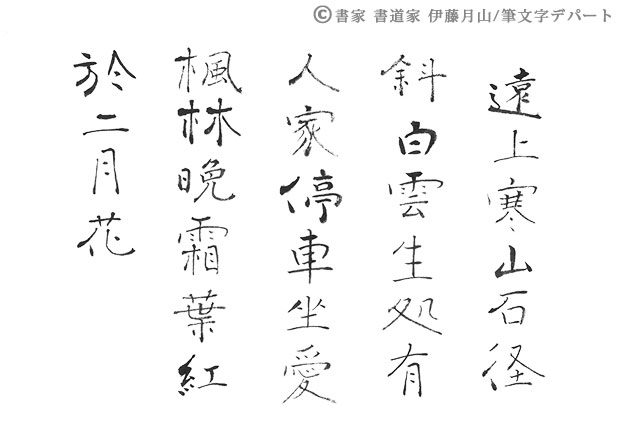 ©書家 書道家 伊藤月山/筆文字デパート
遠上寒山石径
斜白雲生処有
人家停車坐愛
楓林晩霜葉紅
於二月花